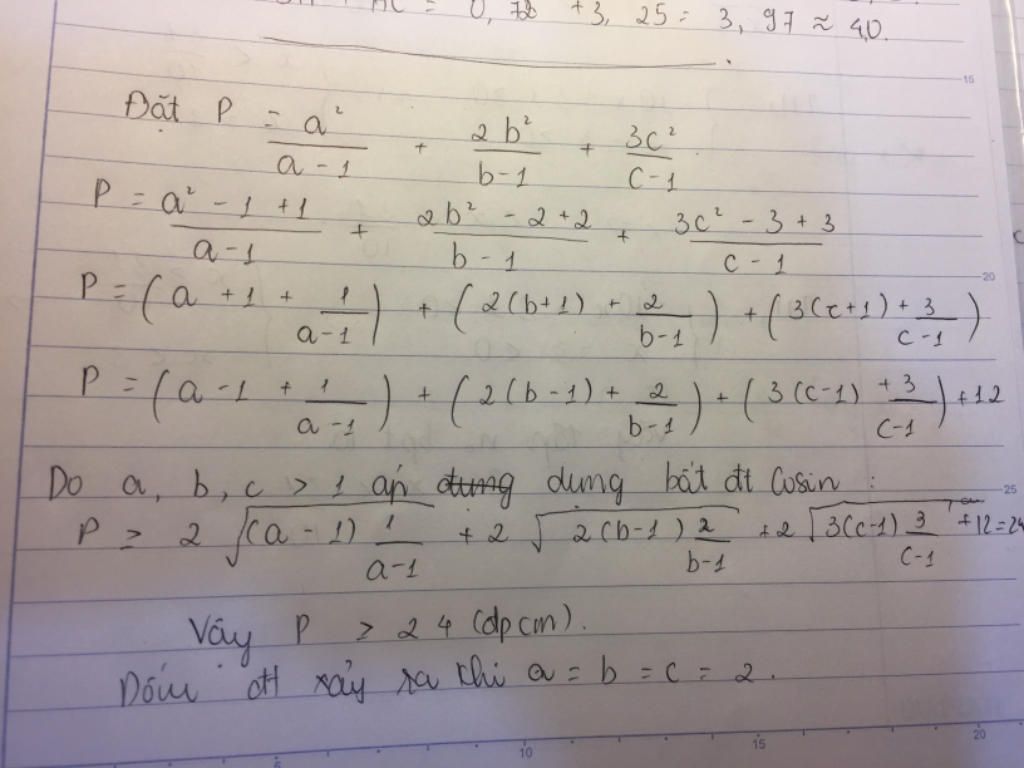 = 0,72 + 3,25 = 3,97 ≈ 4,0.
Đặt P = a²/(a-1) + 2b²/(b-1) + 3c²/(c-1)
P = (a² - 1 + 1)/(a-1) + (2b² - 2 + 2)/(b-1) + (3c² - 3 + 3)/(c-1)
P = (a + 1 + 1/(a-1)) + (2(b+1) + 2/(b-1)) + (3(c+1) + 3/(c-1))
P = (a - 1 + 1/(a-1)) + (2(b-1) + 2/(b-1)) + (3(c-1) + 3/(c-1)) + 12
Do a, b, c > 1 áp dụng bất đt Cosin :
P ≥ 2√((a-1) 1/(a-1)) + 2√(2(b-1) 2/(b-1)) + 2√(3(c-1) 3/(c-1)) + 12 = 24
Vây P ≥ 24 (đpcm).
Dấu đt xảy ra khi a = b = c = 2.
15
20
25
5
10
15
20